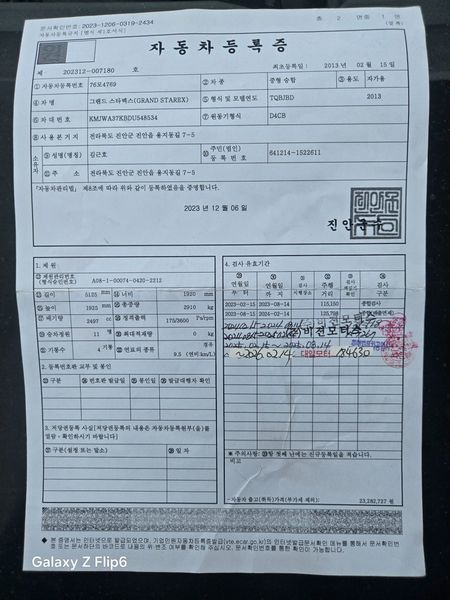 문서확인번호: 2023-1206-0319-2434
자동차등록규칙 [별지 제1호서식]
총 2 면중 1 면
자동차등록증
제 202312-007180 호
최초등록일 : 2013 년 02 월 15 일
① 자동차등록번호 76모4769 ② 차종 중형 승합 ③ 용도 자가용
④ 차명 그랜드 스타렉스(GRAND STAREX) ⑤ 형식 및 모델연도 TQBJBD 2013
⑥ 차대번호 KMJWA37KBDU548534 ⑦ 원동기형식 D4CB
⑧ 사용본거지 전라북도 진안군 진안읍 용지동길 7-5
소유자 ⑨ 성명(명칭) 김근호 ⑩ 주민(법인)등록번호 641214-1522611
⑪ 주소 전라북도 진안군 진안읍 용지동길 7-5
「자동차관리법」 제8조에 따라 위와 같이 등록하였음을 증명합니다.
2023 년 12 월 06 일
1. 제원
⑫ 제원관리번호 (형식승인번호) A08-1-00074-0420-2212
⑬ 길이 5125 mm ⑭ 너비 1920 mm
⑮ 높이 1925 mm 총중량 2910 kg
배기량 2497 cc 정격출력 175/3600 Ps/rpm
승차정원 11 명 최대적재량 0 kg
기통수 4 기통 연료의 종류 경유 9.5 (연비:km/L)
2. 등록번호판 교부 및 봉인
구분 번호판 발급일 봉인일 발급대행자 확인
3. 저당권등록 사실[저당권등록의 내용은 자동차등록원부(을)를 열람·확인하시기 바랍니다]
구분(설정 또는 말소) 일자
4. 검사 유효기간
연월일부터 연월일까지 검사시행장소 주행거리 검사책임자확인 검사구분
2023-02-15 2023-08-14 115,150 종합검사
2023-08-15
비전모터스
~ 2026.02.14 대일모터 184630
※ 주의사항: 항 첫째 난에는 신규등록일을 적습니다.
비고
-자동차 출고(취득)가격(부가세 제외): 23,282,727 원
◆ 본 증명서는 인터넷으로 발급되었으며, 기업민원자동차등록증발급(vte.ecar.go.kr)의 인터넷발급문서확인 메뉴를 통해서 문서확인번호 또는 문서하단의 바코드로 내용의 위·변조 여부를 확인해 주십시오. 문서확인번호를 통한 확인이 가능합니다.
Galaxy Z Flip6